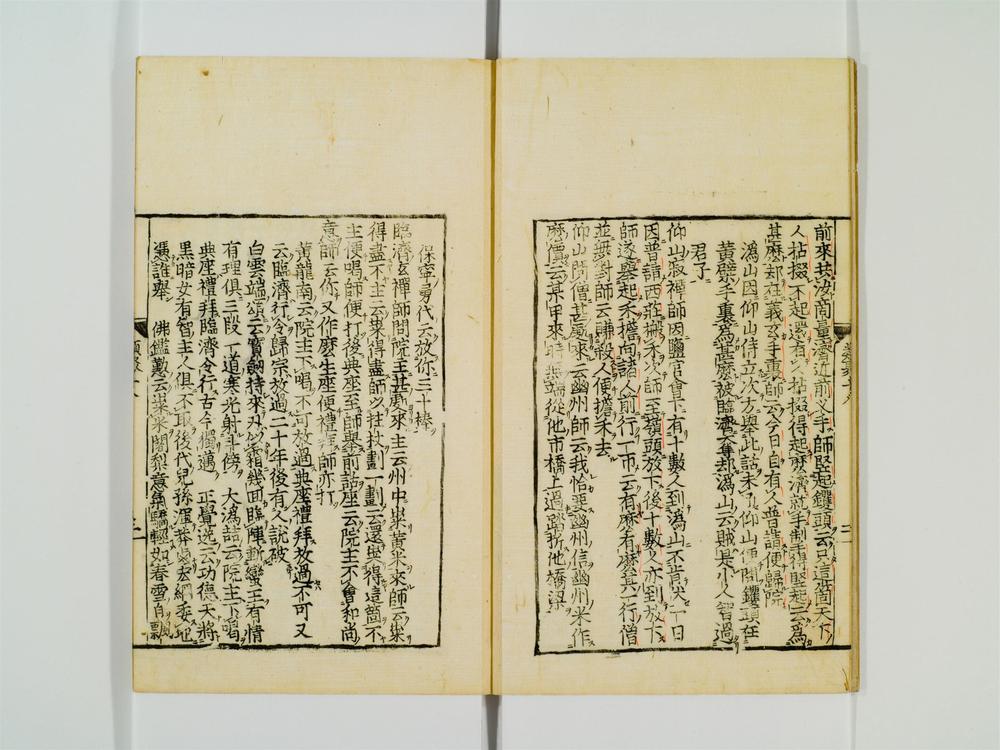 前來共汝商量濟近前叉手師竪起钁頭云只這箇天下
人拈掇不起還有人拈掇得起麼濟就手掣得竪起云爲
甚麼却在義玄手裏師云今日自有人普請便歸院
潙山因仰山侍立次方擧此話未了仰山便問钁頭在
黄檗手裏爲甚麼被臨濟奪却潙山云賊是小人智過
君子
仰山寂禪師因鹽官會下有十數人到潙山不肯
因普請西莊搬禾次師至嶺頭放下後十數人亦到放下
師遂擧起禾擔向諸人前行一帀云有麼有麼其一行僧
並無對師云賺殺人便擔禾去
仰山問僧甚處來云幽州師云我恰要幽州信幽州米作
麼價云某甲來時無端從他市橋上過踏折他橋梁
保寧勇代云放你三十棒
臨濟玄禪師問院主甚處來主云州中糶黄米來師云糶
得盡不主云糶得盡師以拄杖劃一劃云還糶得這箇不
主便喝師便打後典座至師擧前話座云院主不會和尚
意師云你又作麼生座便禮拜師亦打
黄龍南云院主下喝不可放過典座禮拜放過不可又
云臨濟行令歸宗放過二十年後有人說破
白雲端頌云寶劒持來刃似霜幾回臨陣斬蠻王有情
有理俱三段一道寒光射斗傍 大潙喆云院主下喝
典座禮拜臨濟令行古今獨邁 正覺逸云功德天將
黑暗女有智主人俱不取後代兒孫 宏綱委地
憑誰擧 佛鑑懃云糶米闍梨意氣驕輕如春雪自風飄